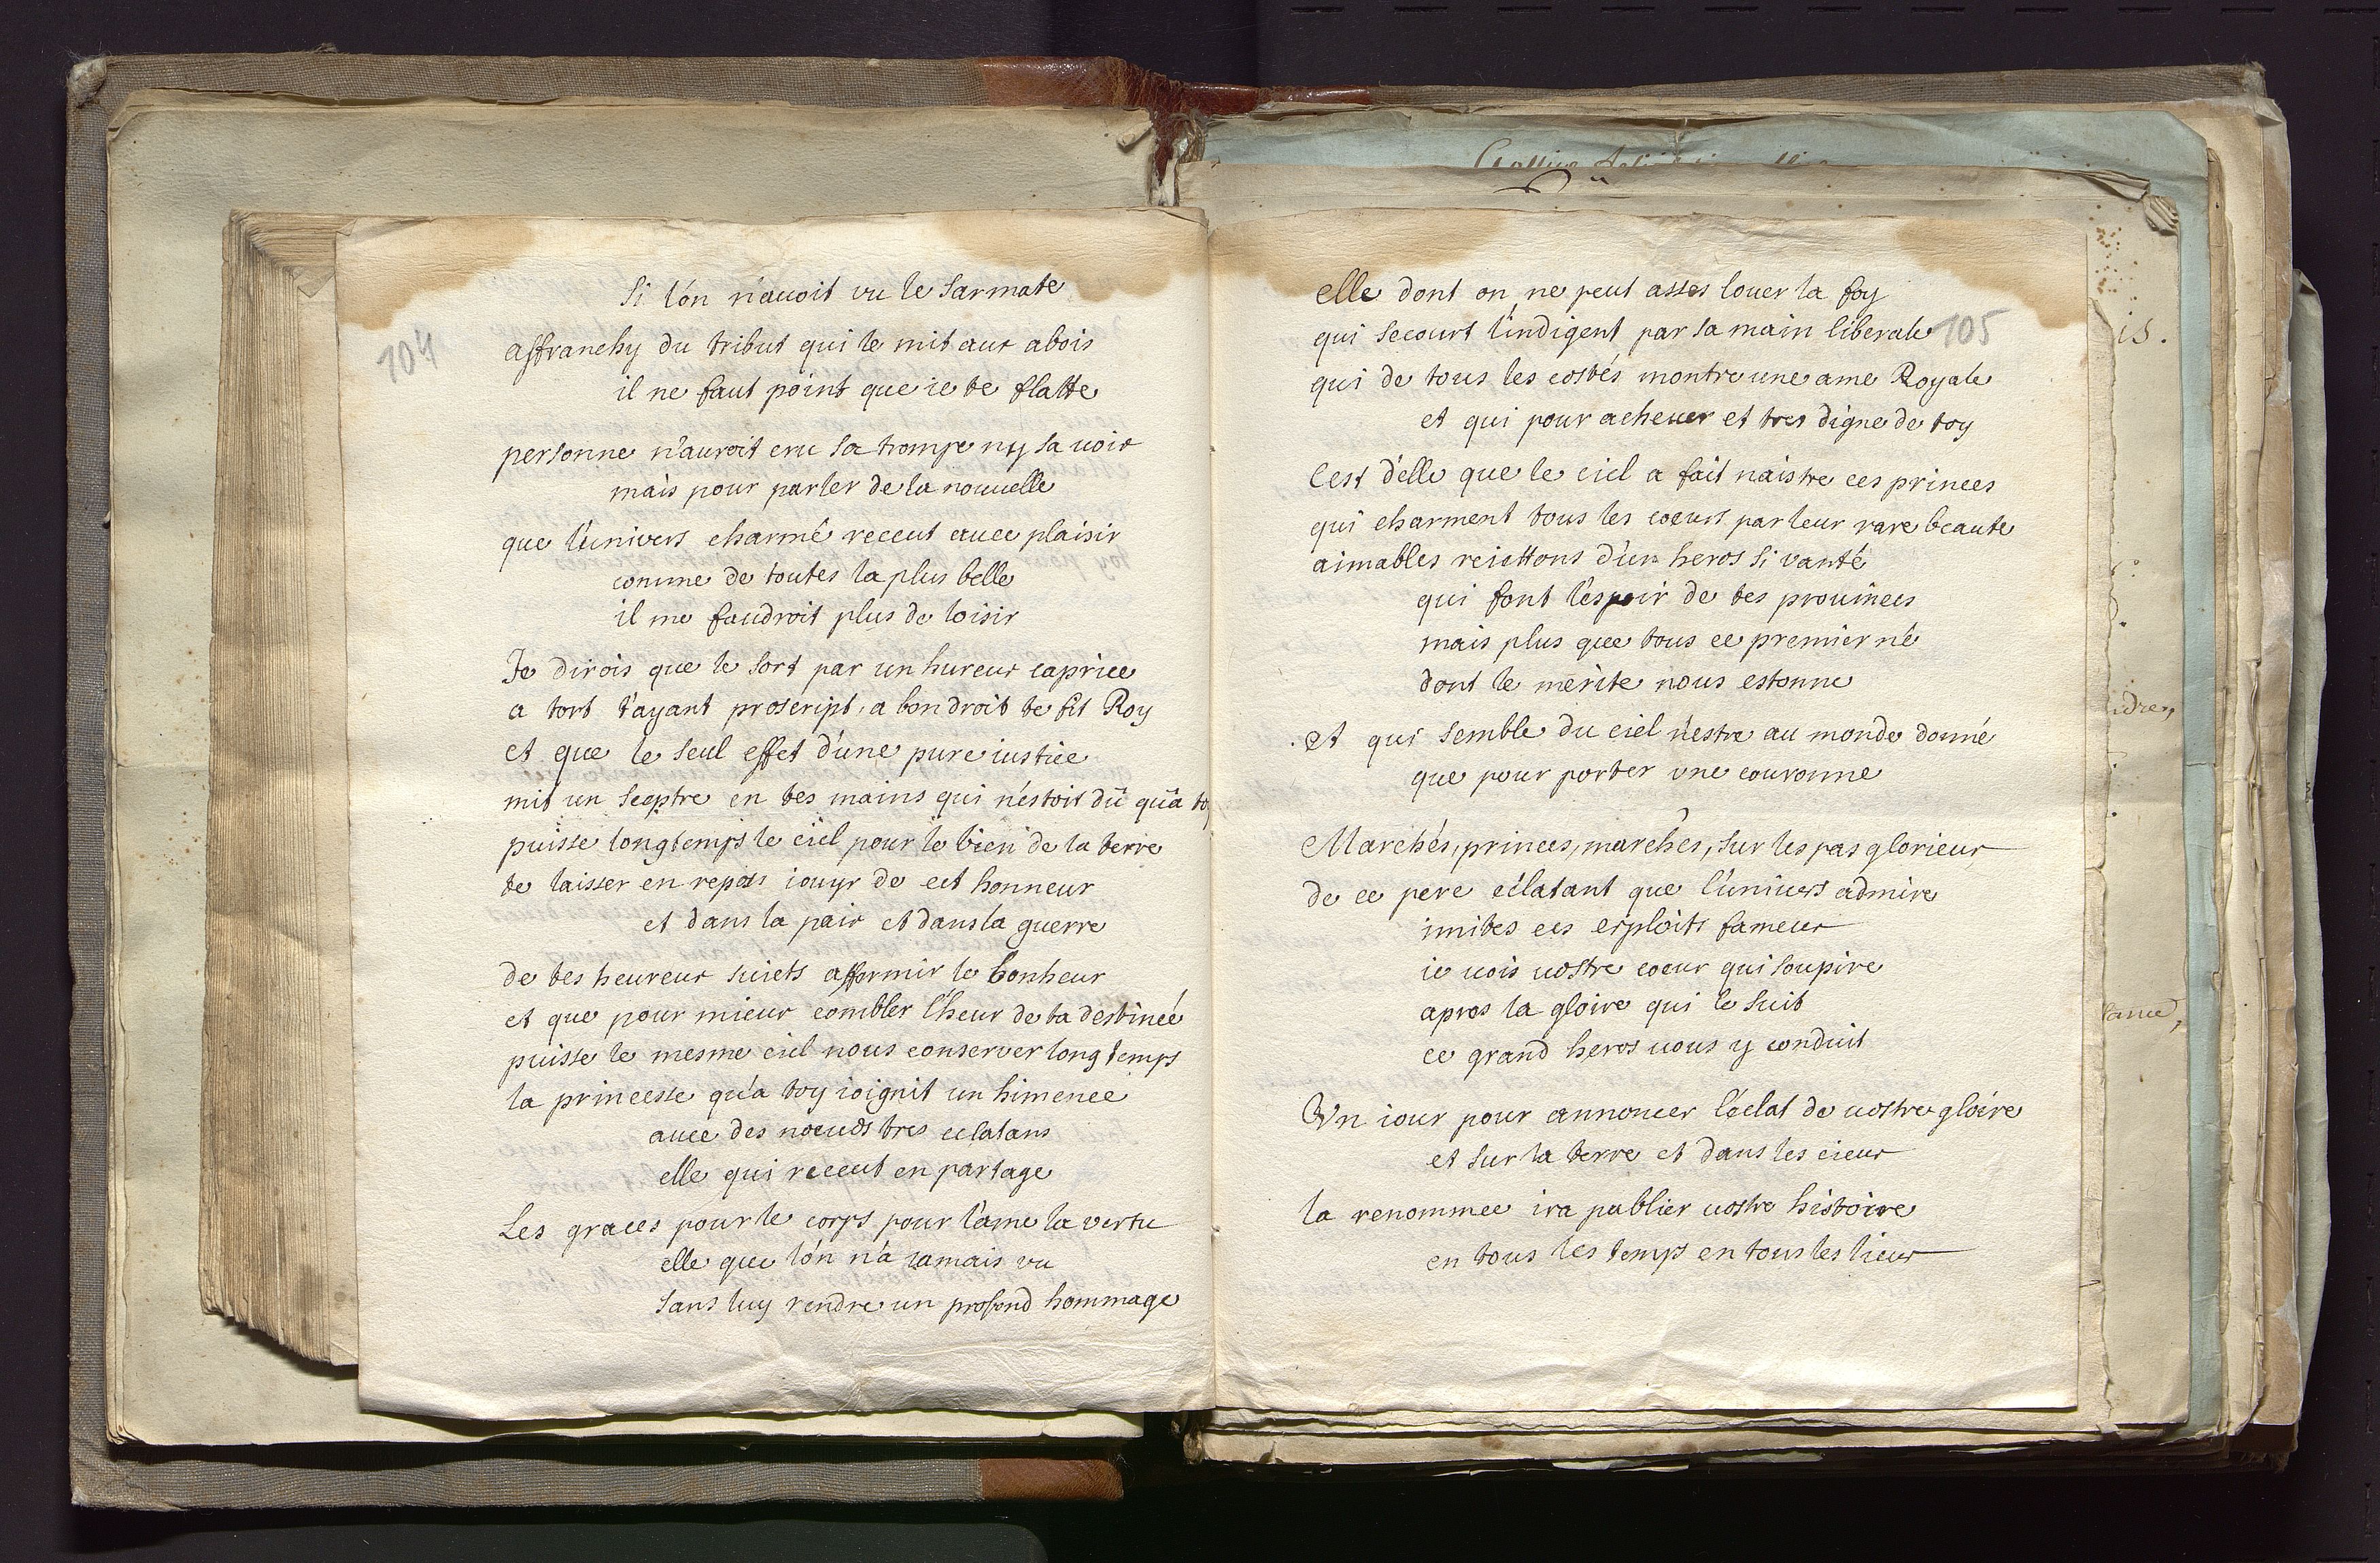 104
Si l'on n'auoit vu le Sarmate
affranchy du tribut qui le mit aux abois
il ne faut point que ie te flatte
personne n'auroit cru sa trompe ny sa uoix
mais pour parler de la nouuelle
que l'univers charmé receut auec plaisir
comme de toutes la plus belle
il me faudroit plus de loisir
Je dirois que le sort par un hureux caprice
a tort t'ayant proscript, a bon droit te fit Roy
et que le seul effet d'une pure iustice
mit un sceptre en tes mains qui n'estoit dû qu'a toy
puisse longtemps le ciel pour le bien de la terre
te laisser en repos iouyr de cet honneur
et dans la paix et dans la guerre
de tes heureux suiets affermir le bonheur
et que pour mieux combler l'heur de ta destinée
puisse le mesme ciel nous conserver long temps
la princesse qu'a toy ioignit un himenee
auec des noeuds tres eclatans
elle qui receut en partage
Les graces pour le corps pour l'ame la vertu
elle que l'on n'a iamais vu
sans luy rendre un profond hommage
elle dont on ne peut asses louer la foy
qui secourt l'indigent par sa main liberale
105
qui de tous les costés montre une ame Royale
et qui pour acheuer et tres digne de toy
C'est d'elle que le ciel a fait naistre ces princes
qui charment tous les coeurs par leur rare beaute
aimables reiettons d'un heros si vanté
qui font l'espoir de tes prouinces
mais plus que tous ce premier né
dont le merite nous estonne
et qui semble du ciel n'estre au monde donné
que pour porter une couronne
Marchés, princes, marchés, sur les pas glorieux
de ce pere eclatant que l'uniuers admire
imites ces exploits fameux
ie uois uostre coeur qui soupire
apres la gloire qui le suit
ce grand heros uous y conduit
Un iour pour annoncer l'eclat de uostre gloire
et sur la terre et dans les cieux
la renommee ira publier uostre histoire
en tous les temps en tous les lieux